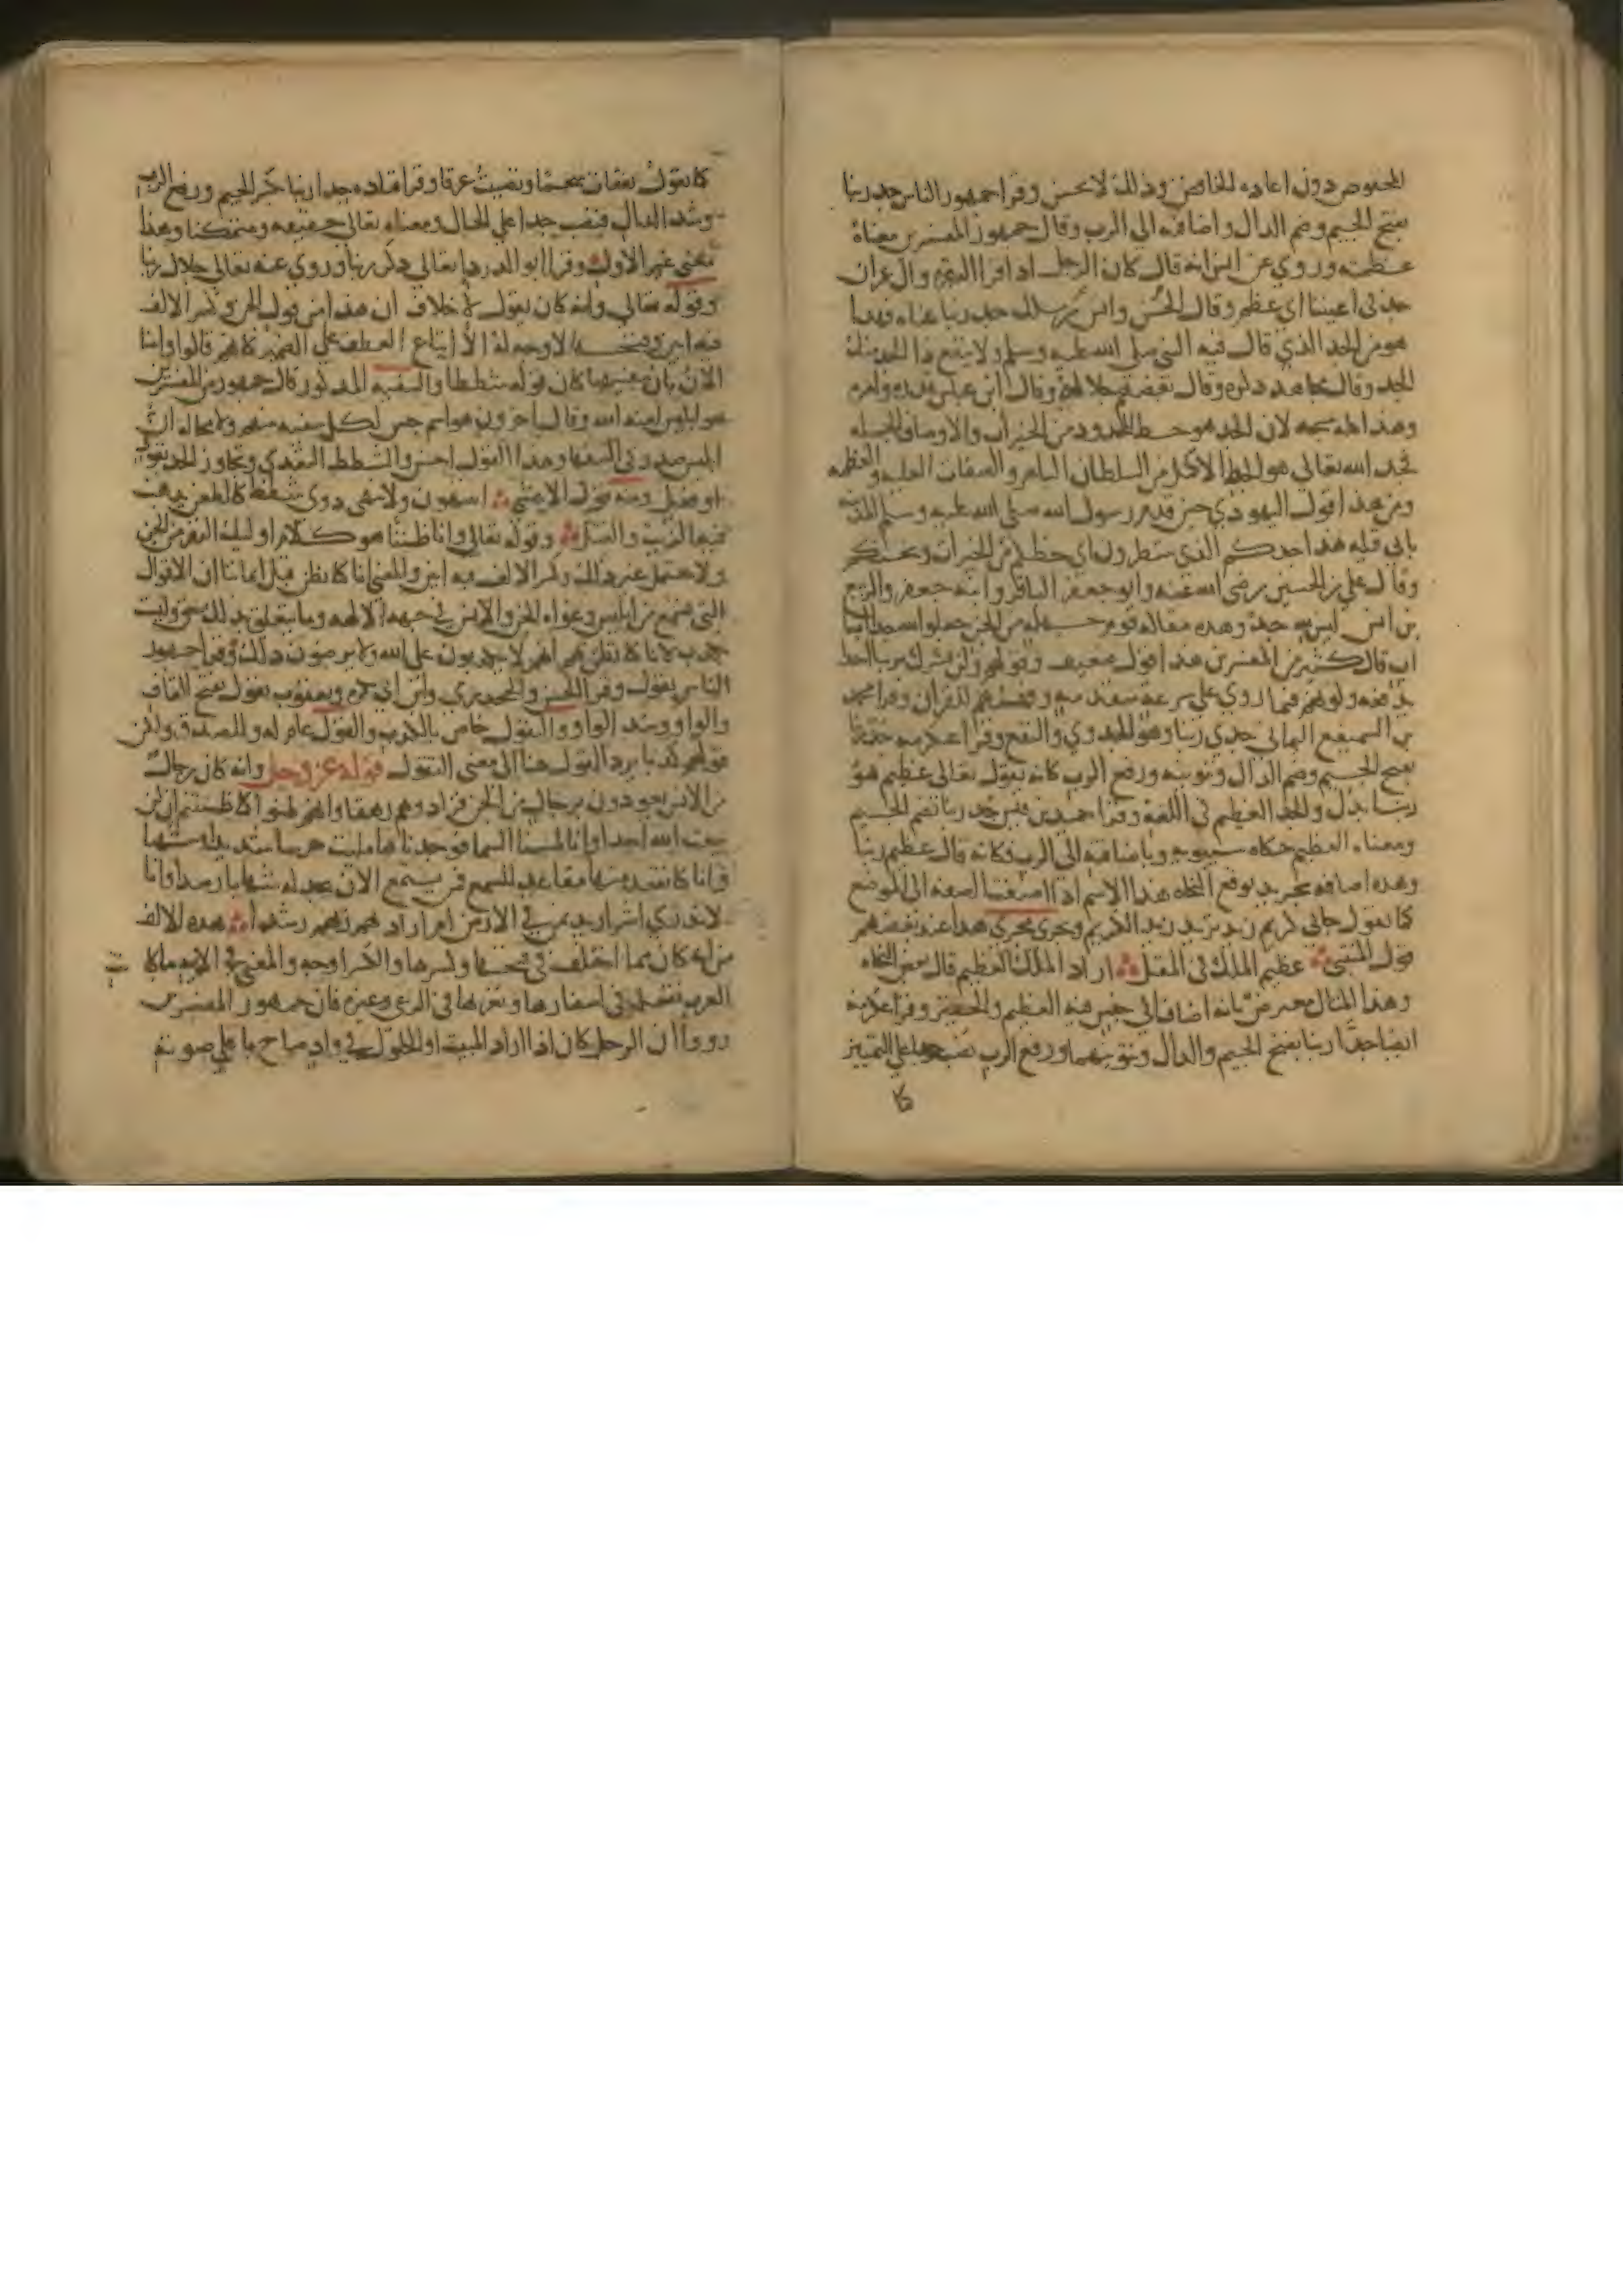 المخفوض دون اعاده الخافض وذلك لا يحسن وقرا جمهور الناس جد ربنا
بفتح الجيم وضم الدال واضافته الى الرب وقال جمهور المفسرين معناه
عظمته وروي عن انس انه قال كان الرجل اذا قرا البقره وال عمران
جد في اعيننا اي عظم وقال الحسن وانس بن مالك جد ربنا غناه فهذا
هو من الجد الذي قال فيه النبي صلى الله عليه وسلم ولا ينفع ذا الجد منك
الجد وقال مجاهد ذكره وقال بعضهم جلاله وقال ابن عباس قدره وامره
وهذا كله متجه لان الجد هو حظ المجدود من الخيرات والاوصاف الجميله
فجد الله تعالى هو الحظ الاكمل من السلطان الباهر والصفات العليه والعظمه
ومن هذا قول اليهودي حين قدم رسول الله صلى الله عليه وسلم المدينه
يا بني قيله هذا جدكم الذي تنتظرون اي حظكم من الخيرات وبختكم
وقال علي بن الحسين رضي الله عنه وابو جعفر الباقر وابنه جعفر والربيع
بن انس ليس لله جد وهذه مقاله قوم جهله من الجن جعلوا الله جدا ابا
اب قال كثير من المفسرين هذا قول ضعيف وقولهم ولن نشرك بربنا احدا
يدفعه وكونهم فيما روي على شريعه متقدمه وفهمهم للقران وقرا محمد
بن السميفع اليماني جدى ربنا وهو الجدوى والنفع وقرا عكرمه جد ربنا
بفتح الجيم وضم الدال وتنوينه ورفع الرب كانه يقول تعالى عظيم هو
ربنا بدل والجد العظيم في اللغه وقرا حميد بن قيس جد ربنا بضم الجيم
ومعناه العظيم حكاه سيبويه وباضافته الى الرب فكانه قال عظيم ربنا
وهذه اضافه تجريد يوقع النحاه هذا الاسم اذا اضيفت الصفه الى الموصوف
كما تقول جاني كريم زيد تريد زيد الكريم ويجري مجرى هذا عند بعضهم
قول المتنبي عظيم الملك في المقل اراد الملك العظيم قال بعض النحاه
وهذا المثال معترض بانه اضاف الى جنس فيه العظيم والحقير وقرا عكرمه
ايضا جدا ربنا بفتح الجيم والدال وتنوينهما ورفع الرب نصب جدا على التمييز
كما
كما تقول تفقات شحما وتصببت عرقا وقرا قتاده جدا ربنا بكسر الجيم ورفع الرب
وشد الدال فنصب جدا على الحال ومعناه تعالى حقيقه ومتمكنا وهذا
معنى غير الاول وقرا ابو الدردا تعالى ذكر ربنا وروي عنه تعالى جلال ربنا
وقوله تعالى وانه كان يقول لا خلاف ان هذا من قول الجن وكسر الالف
فيه ابين وفتحها لا وجه له الا اتباع العطف على الضمير كانهم قالوا وامنا
الان بان سفيهنا كان قوله شططا والسفيه المذكور قال جمهور من المفسرين
هو ابليس لعنه الله وقال اخرون هو اسم جنس لكل سفيه منهم ولا محاله ان
ابليس صدر في السفها وهذا القول احسن والشطط التعدي وتجاوز الحد بقول
او فعل ومنه قول الاعشى اتنتهون ولا ينهى ذوي شطط كالطعن يذهب
فيه الزيت والفتل وقوله تعالى وانا ظننا هو كلام اوليك النفر من الجن
ولا يحتمل غير ذلك وكسر الالف فيه ابين والمعنى انا كنا نظن قبل ايماننا ان الاقوال
التي نسمع من ابليس وغواه الجن والانس في جهه الالهه وما يتعلق بذلك حق وليست
بكذب لانا كنا نظن بهم انهم لا يكذبون على الله ولا يرضون ذلك وقرا جمهور
الناس تقول وقرا الحسن والجحدري وابن ابي بكره ويعقوب تقول بفتح القاف
والواو وشد الواو والتقول خاص بالكذب والقول عام له وللصدق ولكن
قولهم كذبا يرد القول هنا الى معنى التقول قوله عز وجل وانه كان رجال
من الانس يعوذون برجال من الجن فزادوهم رهقا وانهم ظنوا كما ظننتم ان لن
يبعث الله احدا وانا لمسنا السما فوجدناها مليت حرسا شديدا وشهبا
وانا كنا نقعد منها مقاعد للسمع فمن يستمع الان يجد له شهابا رصدا وانا
لا ندري اشر اريد بمن في الارض ام اراد بهم ربهم رشدا هذه الالف
من انه كان مما اختلف في فتحها وكسرها والكسر اوجه والمعنى في الايه ما كانت
العرب تفعله في اسفارها وتعزبها في الرعي وغيره فان جمهور المفسرين
رووا ان الرجل كان اذا اراد المبيت او الحلول في واد صاح باعلى صوته